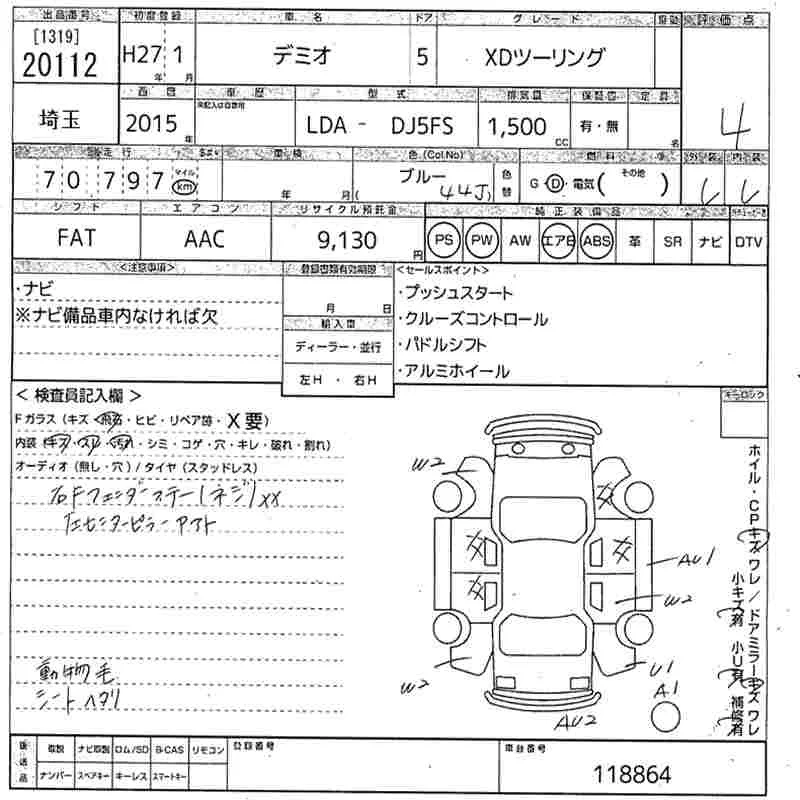 出品番号 初度登録 車名 ドア グレード 車歴 評価点
[1319]
20112 H27年 1月 デミオ 5 XDツーリング
西暦 車歴 型式 排気量 保証書 定員
未記入は自家用
埼玉 2015年 LDA - DJ5FS 1,500cc 有・無 名 4
走行 車検 色(Col.No) 燃料 外装 内装
70,797 マイル km 年 月 ブルー (44J) 色替 G・D・電気( その他 )
シフト エアコン リサイクル預託金 純正装備品
FAT AAC 9,130円 PS PW AW エアB ABS 革 SR ナビ DTV
<注意事項>
・ナビ
※ナビ備品車内なければ欠
登録書類有効期限
月 日
輸入車
ディーラー・並行
左H ・ 右H
<セールスポイント>
・プッシュスタート
・クルーズコントロール
・パドルシフト
・アルミホイール
<検査員記入欄>
キーロック
Fガラス(キズ・飛石・ヒビ・リペア跡・X要)
内装(キズ・スレ・汚れ・シミ・コゲ・穴・キレ・破れ・割れ)
オーディオ(無し・穴)/タイヤ(スタッドレス)
右Fフェンダーステー(ネジ)XX
左センターピラーアスト
動物毛
シートヘタリ
W2
AU1
W2
W2
U1
A1
AU2
ホイル・CPキズ ワレ/ドアミラーキズ ワレ
小キズ有 小U有 補修有
後送品 取説 ナビ取説 ロム/SD B-CAS リモコン 登録番号 車台番号
ナンバー スペアキー キーレス スマートキー 118864